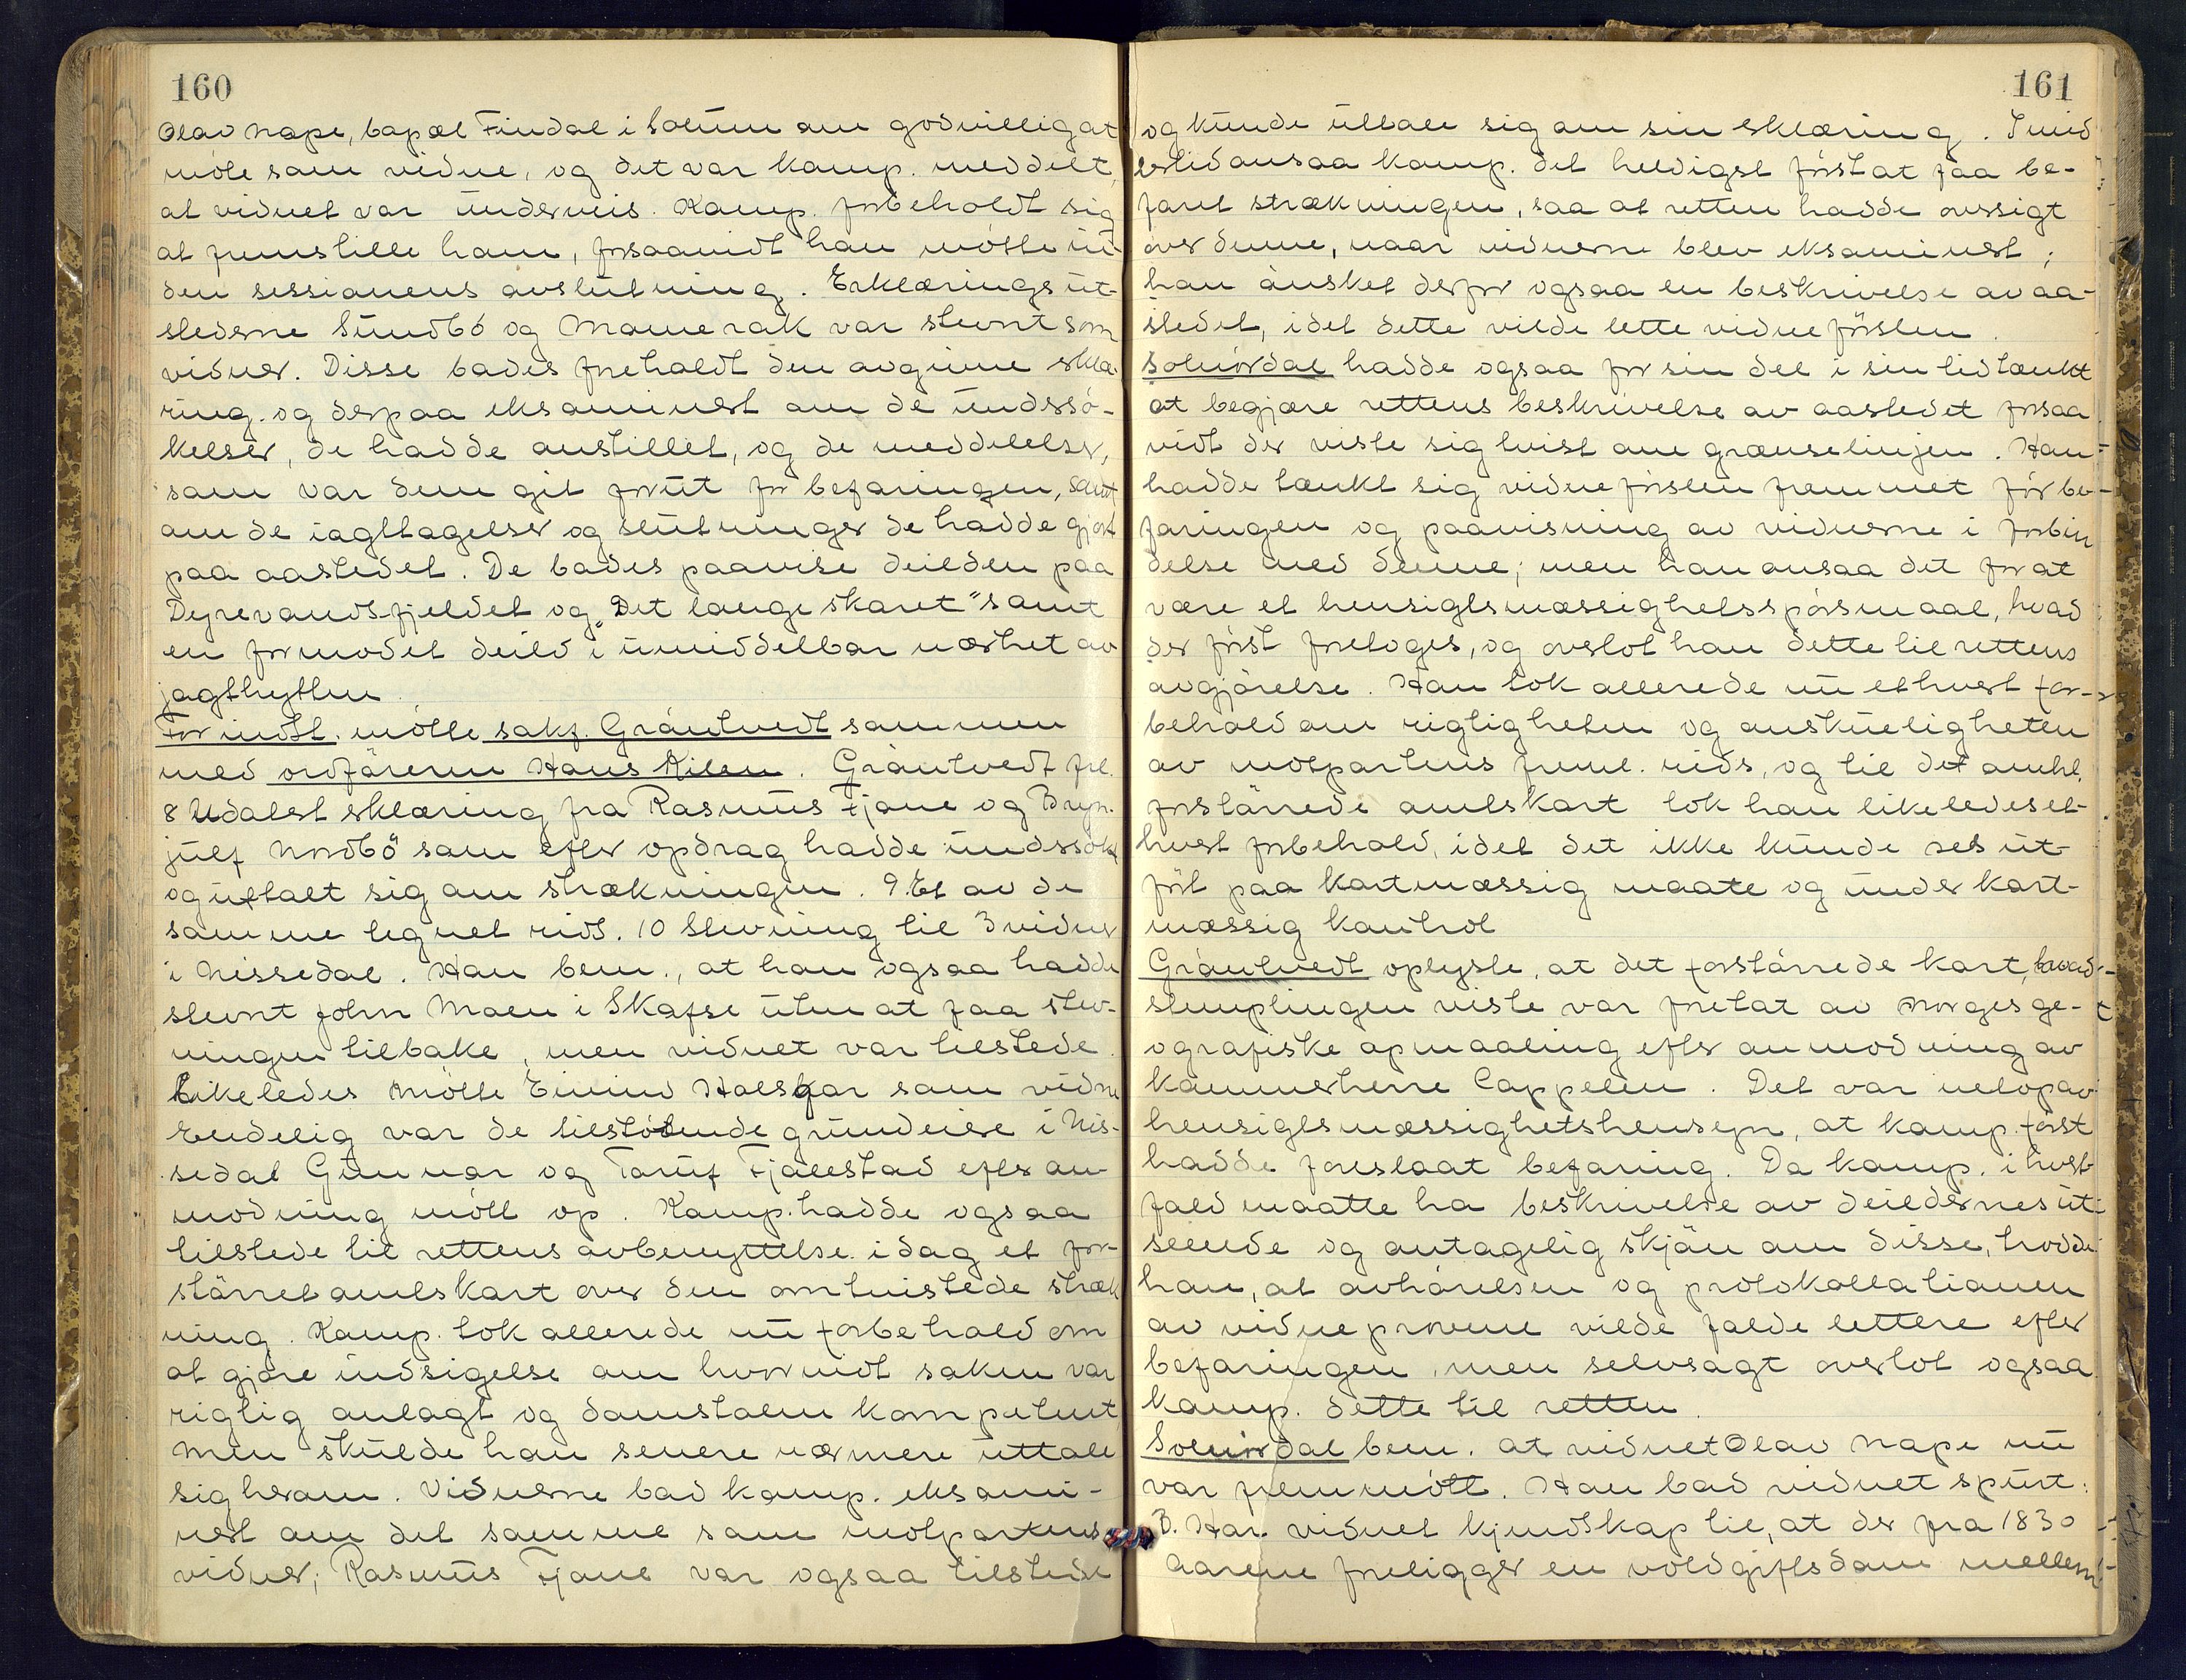 160
Olav Nape, bopæl Findal i Solum om godvillig at
møte som vidne, og det var komp. meddelt,
at vidnet var underveis. Komp. forbeholdt sig
at fremstille ham, forsaavidt han møtte in-
den sessionens avslutning. Erklærings ut-
stederne Sundbö og Momrak var stevnt som
vidner. Disse bades foreholdt den avgivne erklæ-
ring og derpaa eksaminert om de undersö-
kelser, de hadde anstillet, og de meddelelser,
som var dem git forut for befaringen, samt
om de iagttagelser og slutninger de hadde gjort
paa aastedet. De bades paavise deilden paa
Dyrevandsfjeldet og "Det lange skaret" samt
en formodet deild i umiddelbar nærhet av
jagthytten.
For indst. møtte sakf. Gråntvedt sammen
med ordføreren Hans Kilen. Gråntvedt frl.
8 Udatert erklæring fra Rasmus Fjone og Bryn-
julf Nordbö som efter opdrag hadde undersökt
og uttalt sig om strækningen. 9. Et av de
samme tegnet rids. 10 Stevning til 3 vidner
i Nissedal. Han bem., at han ogsaa hadde
stevnt John Moen i Skafse uten at faa stev-
ningen tilbake, men vidnet var tilstede.
Likeledes møtte Eivind Halskar som vidne
Endelig var de tilstötende grundeiere i Nis-
sedal Gunnar og Taruf Fjalestad efter an-
modning mött op. Komp. hadde ogsaa
tilstede til rettens avbenyttelse idag et for-
størret amtskart over den omtvistede stræk
ning. Komp. tok allerede nu forbehold om
at gjøre indsigelse om hvorvidt saken var
rigtig anlagt og domstolen kompetent
men skulde han senere nærmere uttale
sig herom. Vidnerne bad komp. eksami-
nert om det samme som motpartens
vidner; Rasmus Fjone var ogsaa tilstede
161
og kunde uttale sig om sin erklæring. Imid
lertid ansaa komp. det heldigst först at faa be-
faret strækningen, saa at retten hadde oversigt
over denne, naar vidnerne blev eksaminert;
han ønsket derfor ogsaa en beskrivelse av aa-
stedet, idet dette vilde lette vidneförslen.
Solnördal hadde ogsaa for sin del i sin tid tænkt
at begjære rettens beskrivelse av aastedet forsaa
vidt der viste sig tvist om grænselinjen. Han
hadde tænkt sig vidneförslen fremmet för be-
faringen og paavisning av vidnerne i forbin
delse med denne; men han ansaa det for at
være et hensigtsmæssighetsspörsmaal, hvad
der först foretoges, og overlot han dette til rettens
avgjørelse. Han tok allerede nu ethvert for-
behold om rigtigheten og anskueligheten
av motpartens freml. rids, og til det omhl.
forstørrede amtskart tok han likeledes et-
hvert forbehold, idet det ikke kunde sees ut-
fört paa kartmæssig maate og under kart-
mæssig kontrol
Gråntvedt oplyste, at det forstørrede kart, hvad
stemplingen viste var foretat av Norges ge-
ografiske opmaaling efter anmodning av
kammerherre Cappelen. Det var netop av
hensigtsmæssighetshensyn, at komp. först
hadde foreslaat befaring. Da komp. i hvert
fald maatte ha beskrivelse av deildernes ut-
seende og antagelig skjøn om disse, trodde
han, at avhørelsen og protokollationen
av vidneprovene vilde falde lettere efter
befaringen, men selvsagt overlot ogsaa
komp. dette til retten.
Solnördal bem. at vidnet Olav Nape nu
var fremmött. Han bad vidnet spurt:
B. Har vidnet kjendskap til, at der fra 1830
aarene foreligger en voldgiftsdom mellem